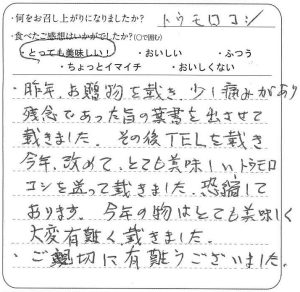 ・何をお召し上がりになりましたか? トウモロコシ
・食べたご感想はいかがでしたか?(○で囲む)
・とっても美味しい! ・おいしい ・ふつう
・ちょっとイマイチ ・おいしくない
・昨年、お贈物を戴き、少し痛みがあり
残念であった旨の葉書を出させて
戴きました。その後TELを戴き
今年、改めて、とても美味しいトウモロ
コシを送って戴きました。恐縮して
おります。今年の物はとても美味しく
大変有難く戴きました。
・ご親切に有難うございました。